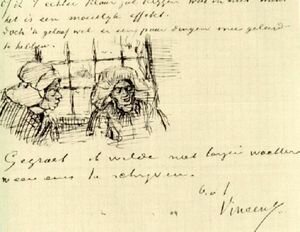 of ik 't echter klaar zal krijgen weet ik niet want
het is een moeielijk effekt.
Doch 'k geloof wel er een paar dingen mee geleerd
te hebben.
Gegroet ik wilde niet langer wachten
weer eens te schrijven.
b.à t
Vincent